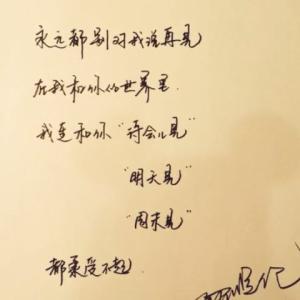 永远都别对我说再见
在我和你的世界里.
我连和你“待会儿见”
“明天见”
“周末见”
都承受不起